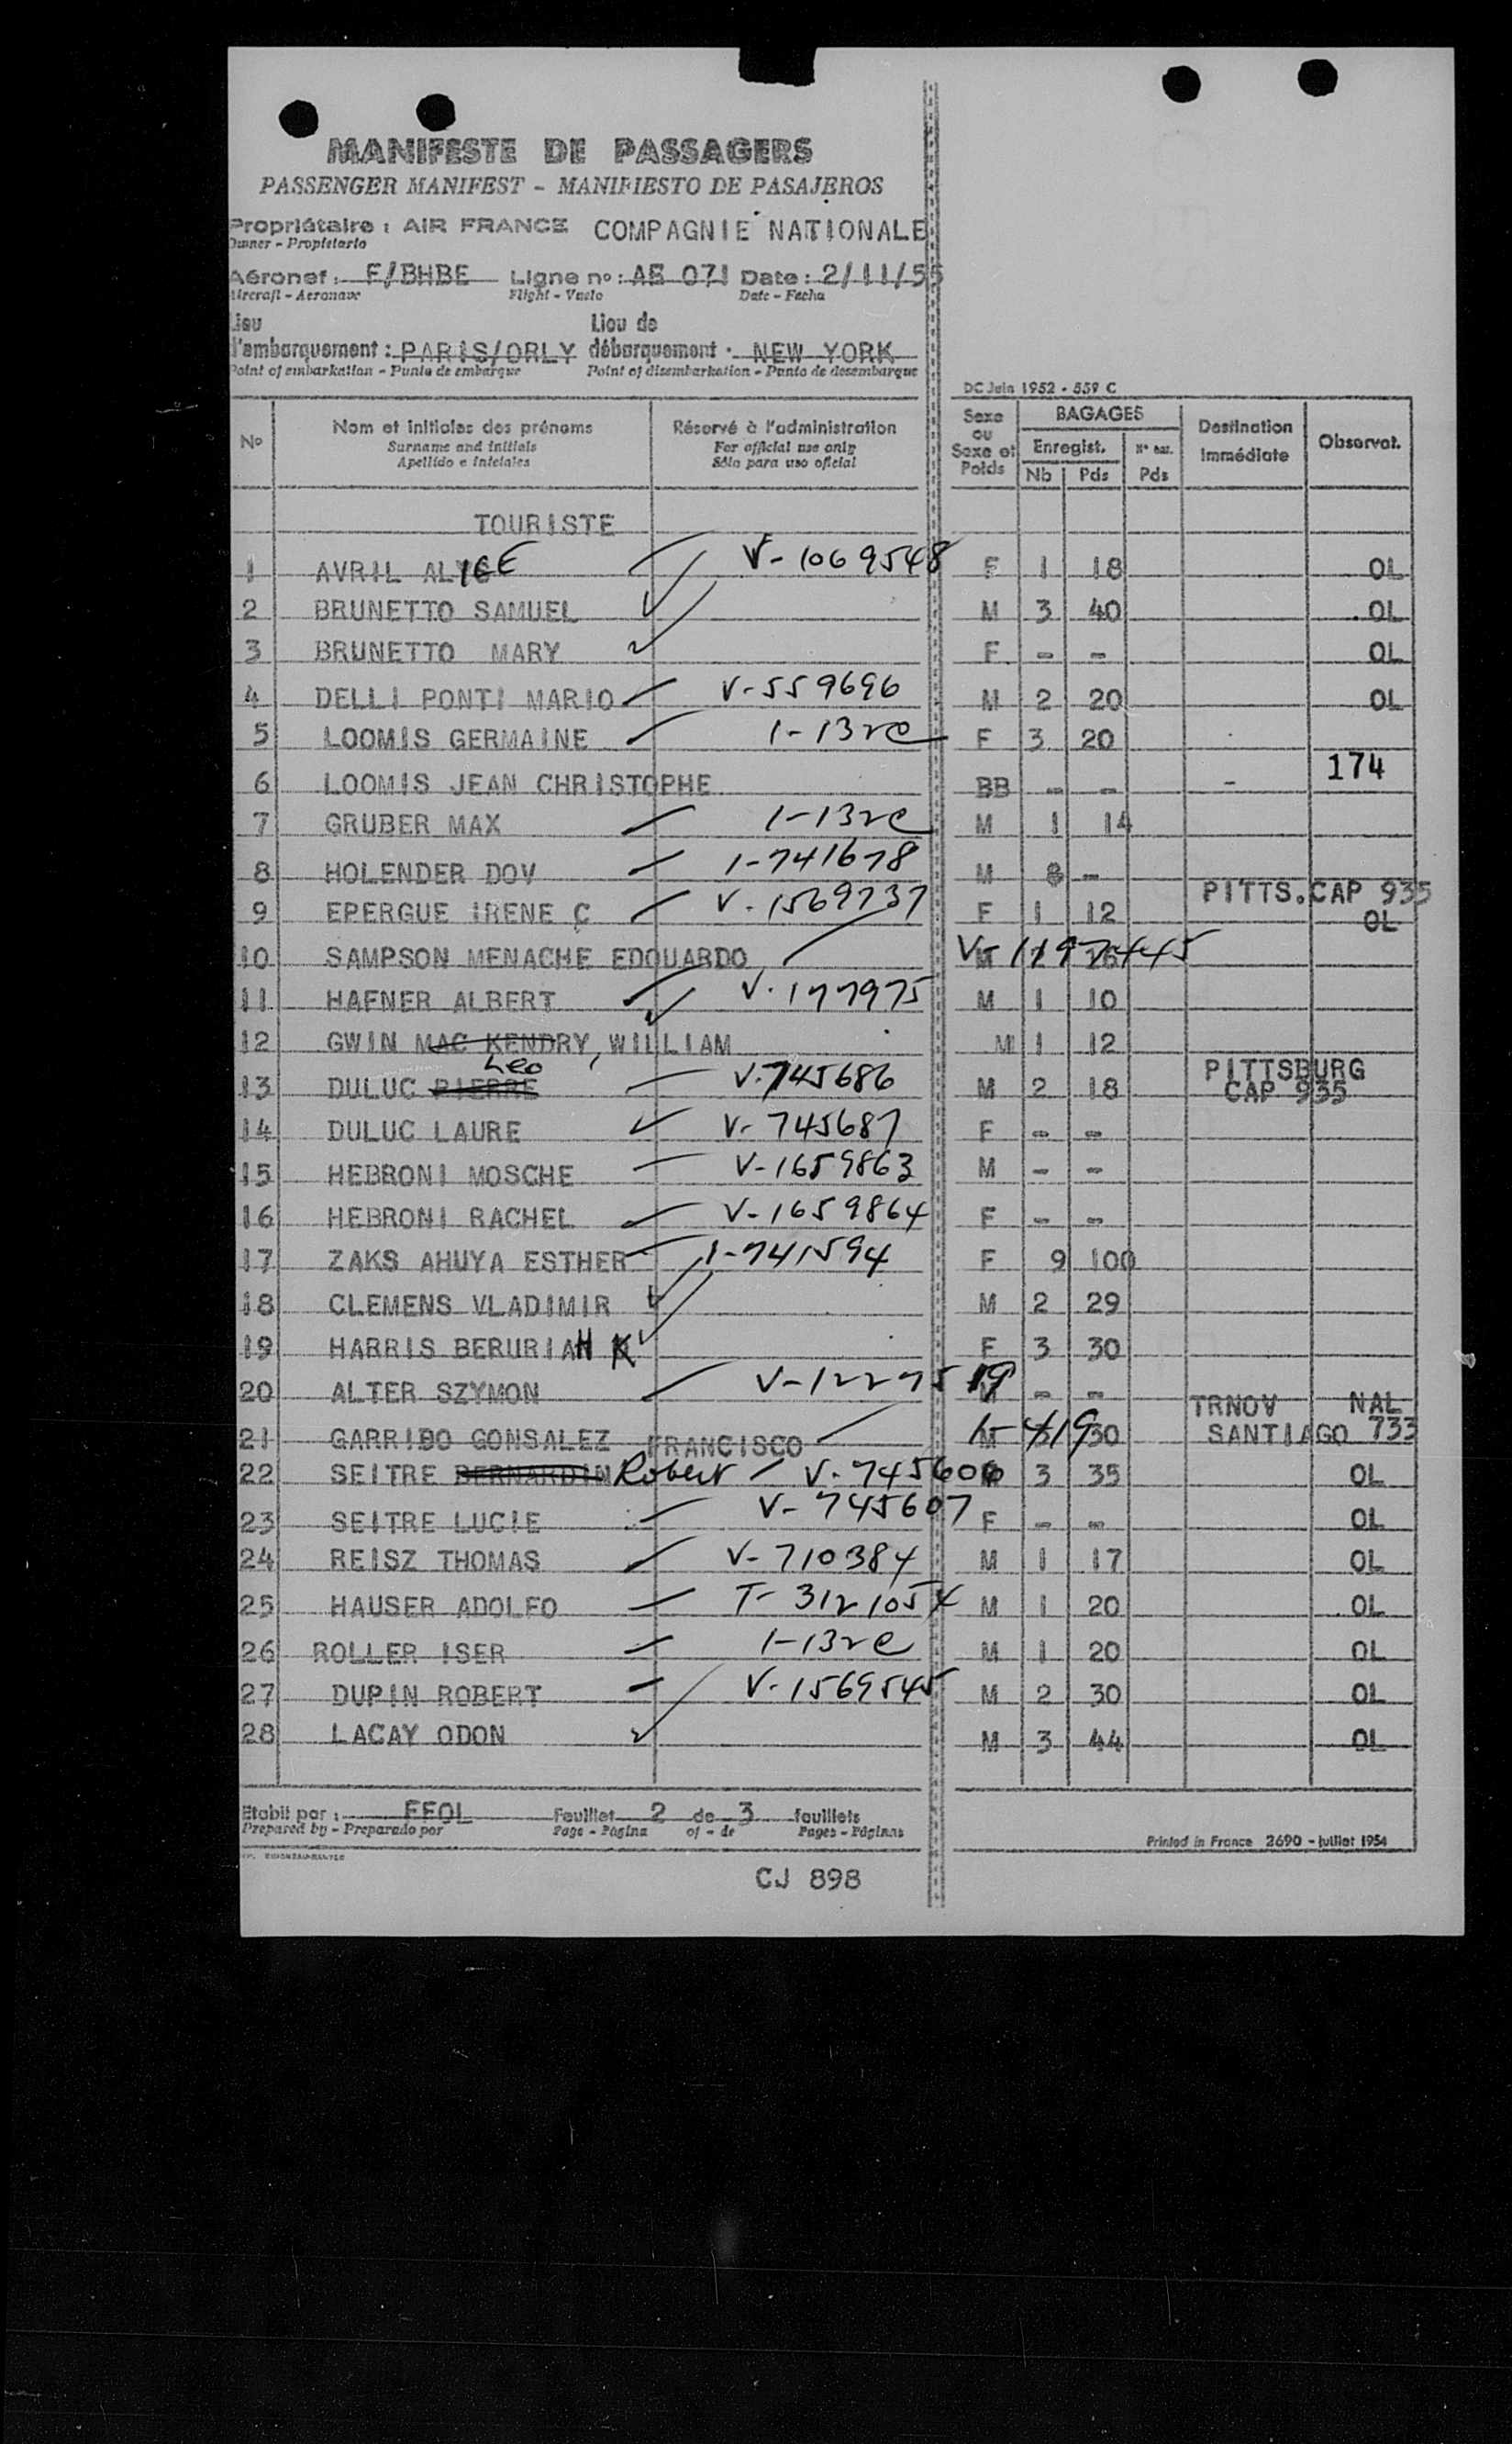 MANIFESTE DE PASSAGERS
PASSENGER MANIFEST - MANIFIESTO DE PASAJEROS
Propriétaire : AIR FRANCE COMPAGNIE NATIONALE
Owner - Propietario
Aéronef : F/BHBE Ligne no : AF 071 Date : 2/11/55
Aircraft - Aeronave Flight - Vuelo Date - Fecha
Lieu Lieu de
d'embarquement : PARIS/ORLY débarquement : NEW YORK
Point of embarkation - Punto de embarque Point of disembarkation - Punto de desembarque
DC Juin 1952 - 559 C
No Nom et initiales des prénoms Réservé à l'administration Sexe ou Sexe et Poids BAGAGES Destination Immédiate Observat.
Surname and initials For official use only Enregist. Nº bag.
Apellido e iniciales Sólo para uso oficial Nb Pds Pds
TOURISTE
1 AVRIL ALYCE V-1069548 F 1 18 OL
2 BRUNETTO SAMUEL M 3 40 OL
3 BRUNETTO MARY F - - OL
4 DELLI PONTI MARIO V-559696 M 2 20 OL
5 LOOMIS GERMAINE 1-132c F 3 20
6 LOOMIS JEAN CHRISTOPHE BB - - - 174
7 GRUBER MAX 1-132c M 1 14
8 HOLENDER DOV 1-741678 M 8 -
9 EPERGUE IRENE C V-1569737 F 1 12 PITTS.CAP 935 OL
10 SAMPSON MENACHE EDOUARDO V-1197445 M
11 HAFNER ALBERT V-177975 M 1 10
12 GWIN MAC KENDRY, WILLIAM M 1 12
13 DULUC PIERRE Leo V-745686 M 2 18 PITTSBURG CAP 935
14 DULUC LAURE V-745687 F - -
15 HEBRONI MOSCHE V-1659863 M - -
16 HEBRONI RACHEL V-1659864 F - -
17 ZAKS AHUYA ESTHER 1-741594 F 9 100
18 CLEMENS VLADIMIR M 2 29
19 HARRIS BERURIAH K F 3 30
20 ALTER SZYMON V-1227519 M - - TRNOV NAL
21 GARRIDO GONSALEZ FRANCISCO 1-419 M 30 SANTIAGO 733
22 SEITRE BERNARDIN Robert V-745606 3 35 OL
23 SEITRE LUCIE V-745607 F - - OL
24 REISZ THOMAS V-710384 M 1 17 OL
25 HAUSER ADOLFO T-3121054 M 1 20 OL
26 ROLLER ISER 1-132c M 1 20 OL
27 DUPIN ROBERT V-1569545 M 2 30 OL
28 LACAY ODON M 3 44 OL
Etabli par : FFOL Feuillet 2 de 3 feuillets
Prepared by - Preparado por Page - Página of - de Pages - Páginas
Printed in France 2690 - Juillet 1954
CJ 898